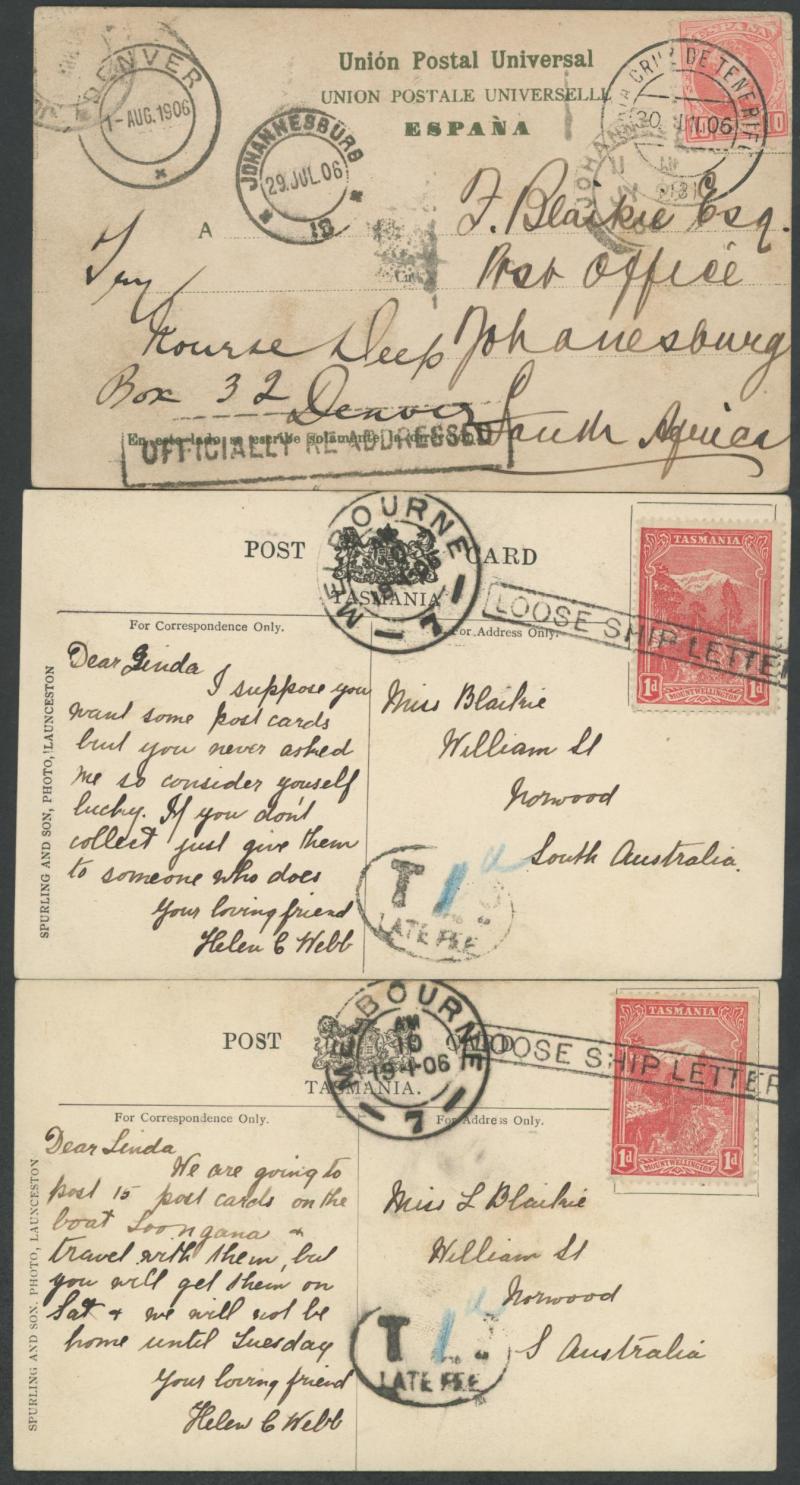 Unión Postal Universal
UNION POSTALE UNIVERSELLE
ESPAÑA
DENVER
1-AUG.1906
JOHANNESBURG
29.JUL.06
18
CRUZ DE TENERIFE
ESPAÑA
10
A
F. Blaikie Esq.
Post Office
Johanesburg
South Africa
Try
Nourse Deep
Box 32 Denver
En este lado se escribe solamente la dirección
OFFICIALLY RE-ADDRESSED
POST CARD
TASMANIA
MELBOURNE
7
For Correspondence Only.
For Address Only.
LOOSE SHIP LETTER
TASMANIA
1d 1d
MOUNT WELLINGTON
SPURLING AND SON, PHOTO, LAUNCESTON
Dear Linda
I suppose you
want some post cards
but you never asked
me so consider youself
lucky. If you don't
collect just give them
to someone who does
Your loving friend
Helen C Webb
Miss Blaikie
William St
Norwood
South Australia.
T 1d
LATE FEE
POST CARD
TASMANIA.
MELBOURNE
AM
10
19-1-06
7
For Correspondence Only.
For Address Only.
LOOSE SHIP LETTER
TASMANIA
1d 1d
MOUNT WELLINGTON
SPURLING AND SON, PHOTO, LAUNCESTON
Dear Linda
We are going to
post 15 post cards on the
boat Loongana &
travel with them, but
you will get them on
Sat & we will not be
home until Tuesday
Your loving friend
Helen C Webb
Miss L Blaikie
William St
Norwood
S Australia
T 1d
LATE FEE